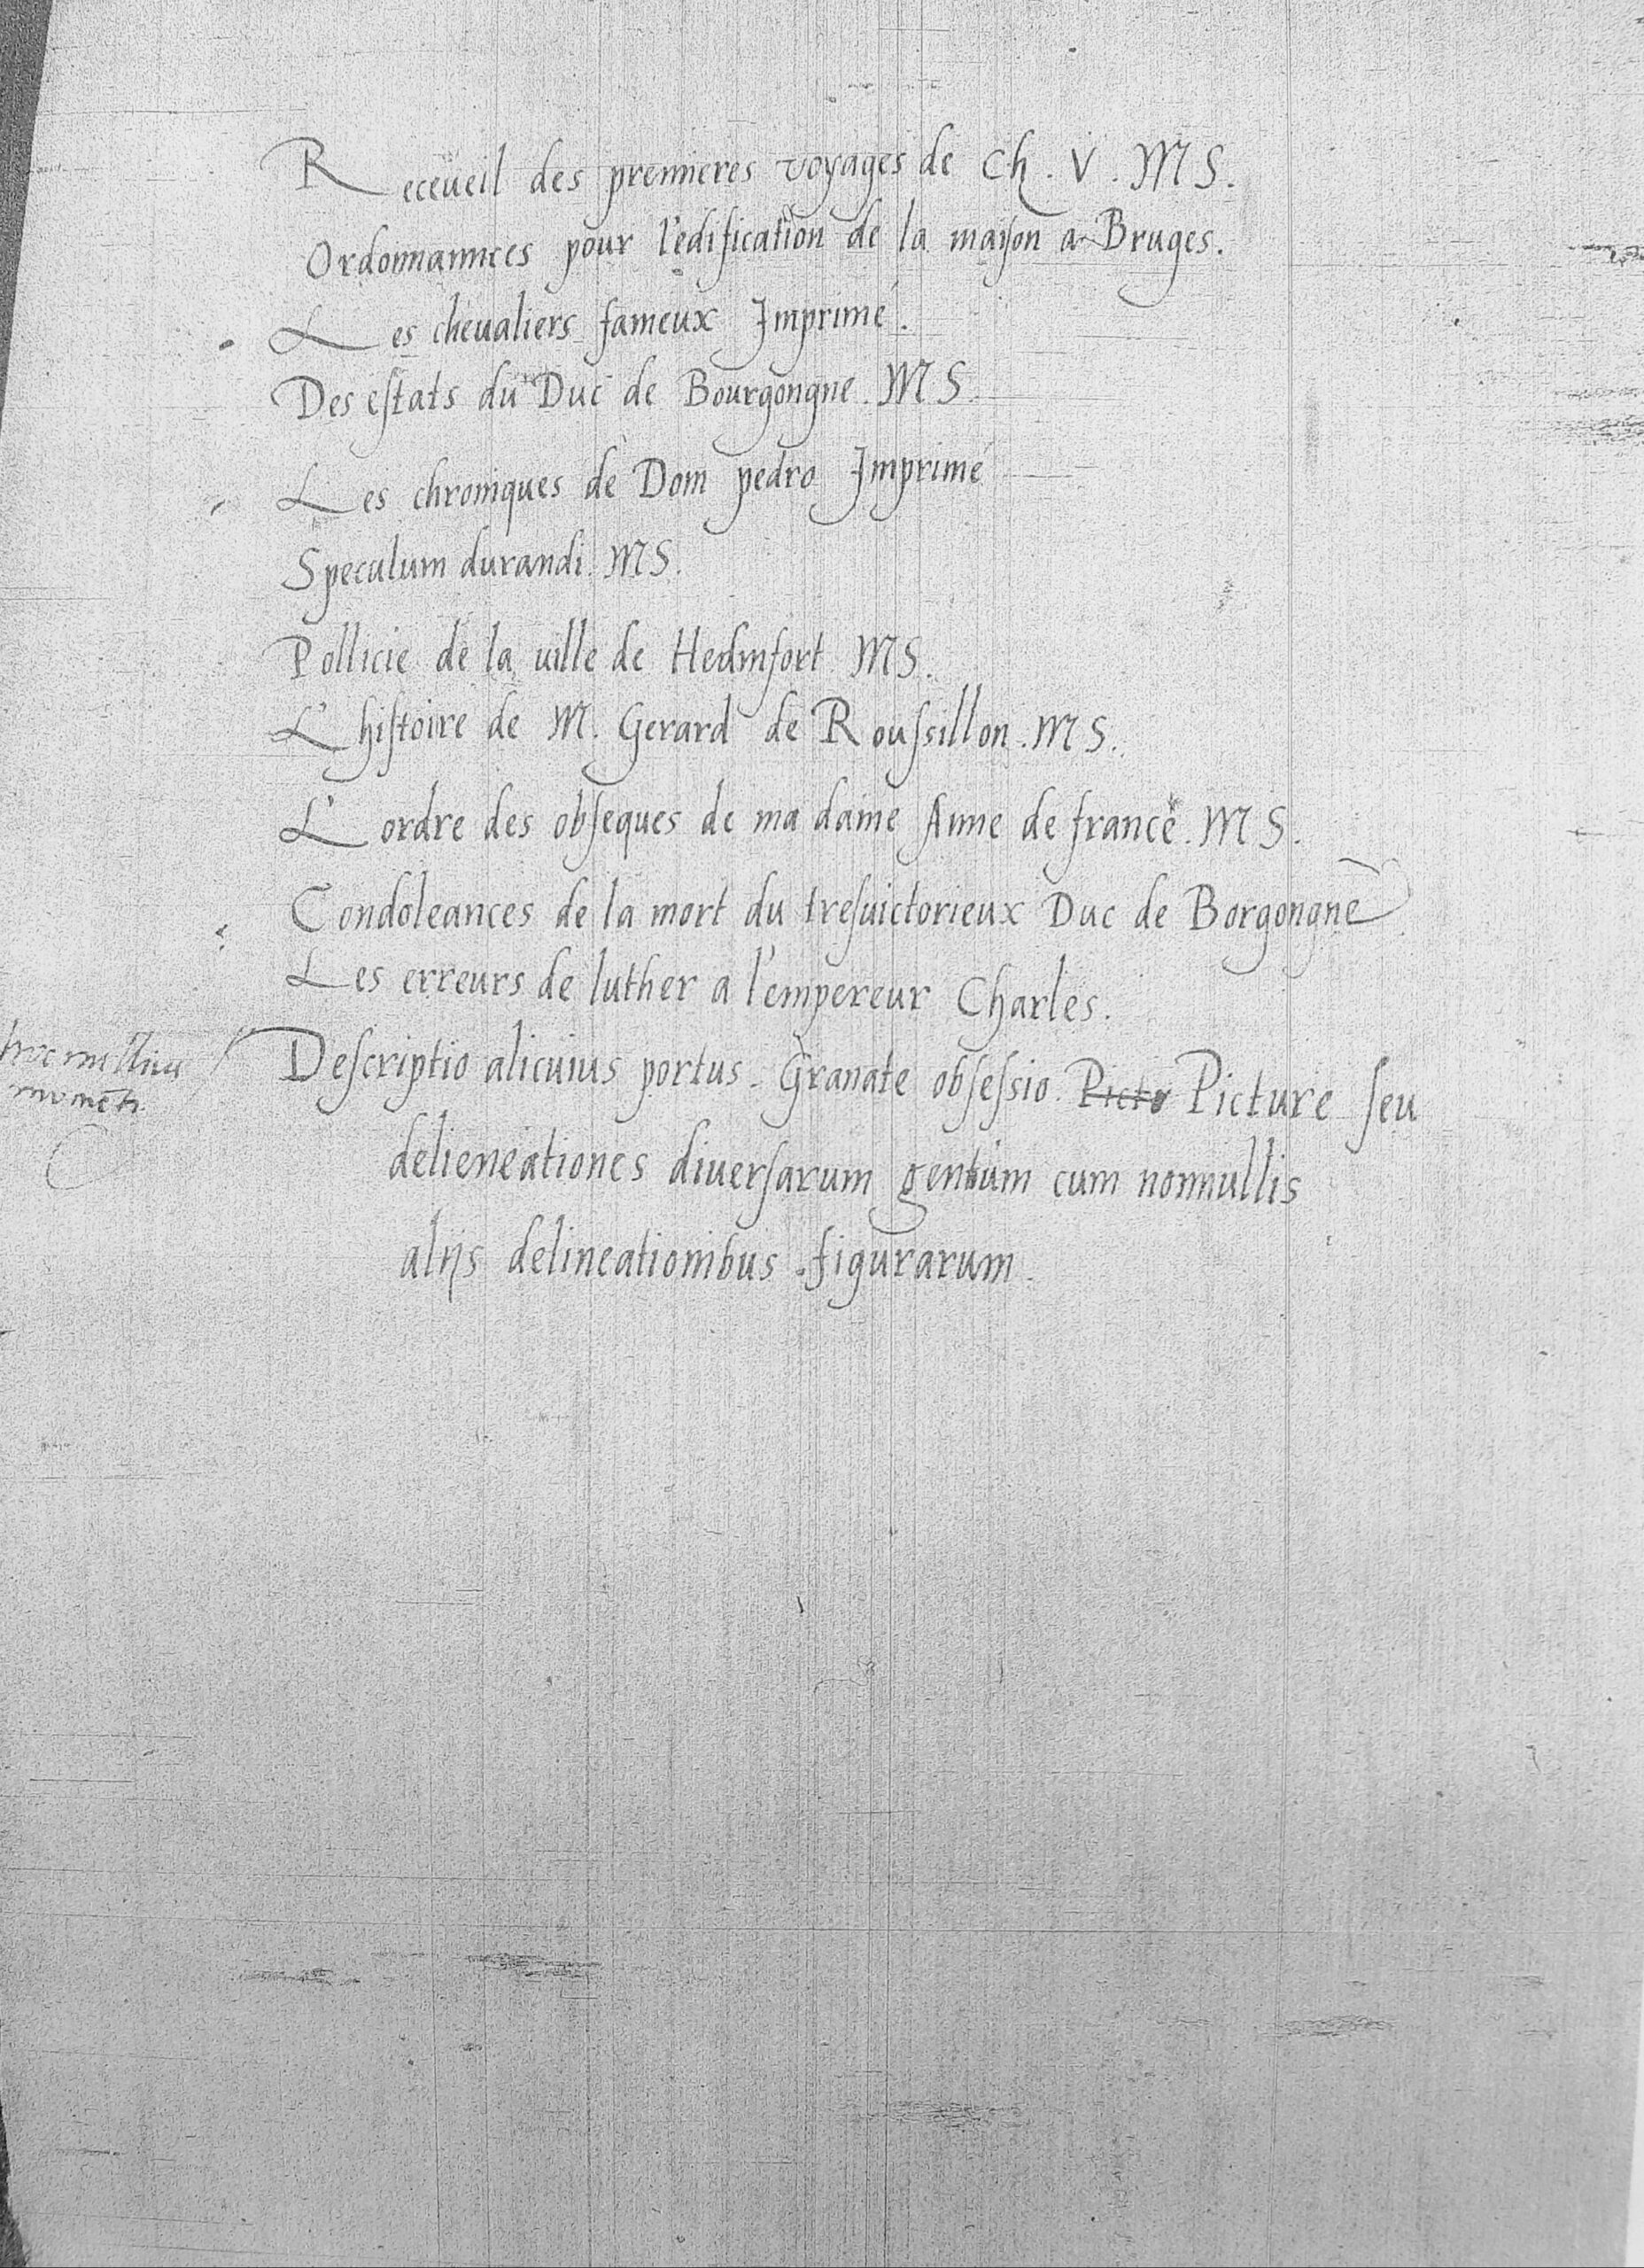 Receueil des premieres voyages de Ch. V. MS.
Ordonnannces pour l'edification de la maison a Bruges.
Les cheualiers fameux Imprimé.
Des eſtats du Duc de Bourgongne. MS.
Les chroniques de Dom pedro Imprimé
Speculum durandi. MS.
Pollicie de la uille de MS.
L'hiſtoire de M. Gerard de Rouſsillon. MS.
L'ordre des obſeques de ma dame Anne de france. MS.
Condoleances de la mort du treſuictorieux Duc de Borgongne
Les erreurs de luther a l'empereur Charles.
hæc nullius
momẽti.
Deſcriptio alicuius portus. Granate obſeſsio. Picture ſeu
delieneationes diuerſarum gentium cum nonnullis
alijs delineationibus figurarum.